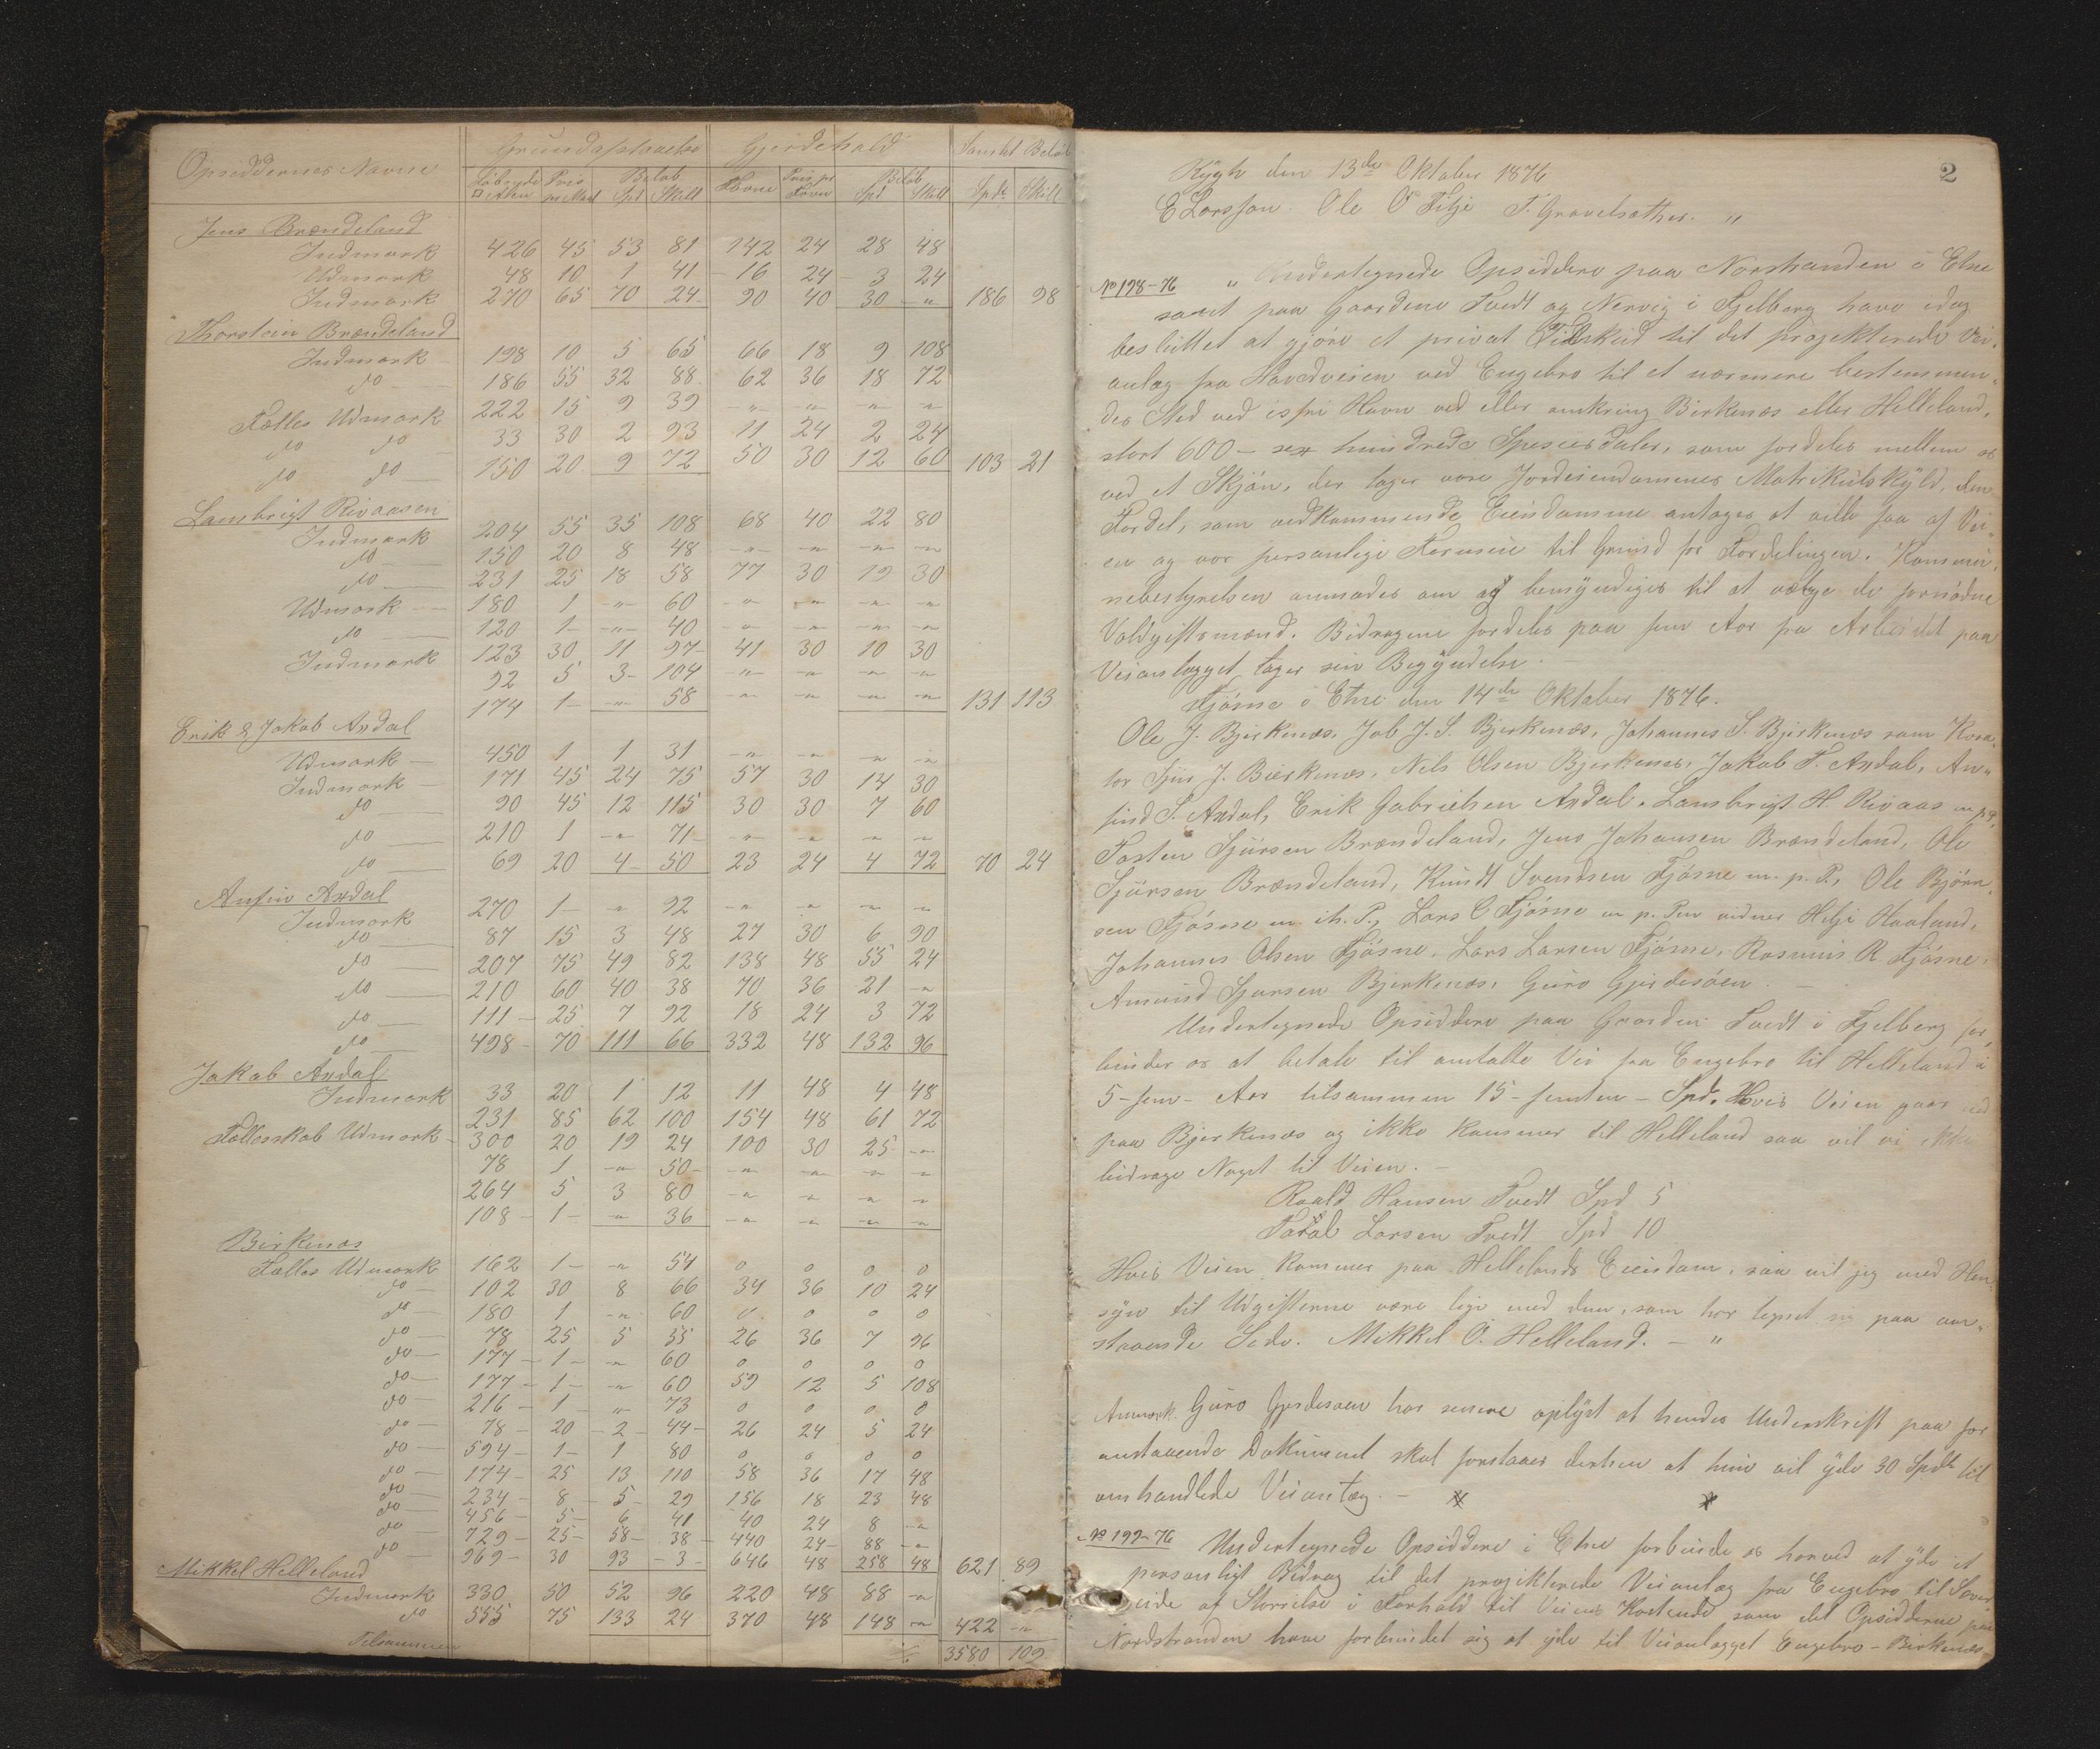 Opsiddernes Navne Grundafstaaelse Gjerdehald Samlet Beløb
Løbende Alen Pris pr Maal Beløb Spd Skill Favne Pris pr Favn Beløb Spd Skill Spdr Skill
Jens Brændeland
Indmark 426 45 53 81 142 24 28 48
Udmark 48 10 1 41 16 24 3 24
Indmark 270 65 70 24 90 40 30 " 186 98
Thorstein Brændeland
Indmark 198 10 5 65 66 18 9 108
do 186 55 32 88 62 36 18 72
Fælles Udmark 222 15 9 39 " " " "
do do 33 30 2 93 11 24 2 24
do do 150 20 9 72 50 30 12 60 103 21
Lambrigt Rivaasen
Indmark 204 55 35 108 68 40 22 80
do 150 20 8 48 " " " "
do 231 25 18 58 77 30 19 30
Udmark 180 1 " 60 " " " "
do 120 1 " 40 " " " "
Indmark 123 30 11 97 41 30 10 30
92 5 3 104 " " " "
174 1 " 58 " " " " 131 113
Erik & Jakob Axdal
Udmark 450 1 1 31 " " " "
Indmark 171 45 24 75 57 30 14 30
do 90 45 12 115 30 30 7 60
do 210 1 " 71 " " " "
do 69 20 4 50 23 24 4 72 70 24
Anfin Axdal
Indmark 270 1 " 92 " " " "
do 87 15 3 48 27 30 6 90
do 207 75 49 82 138 48 55 24
do 210 60 40 38 70 36 21 "
do 111 25 7 92 18 24 3 72
do 498 70 111 66 332 48 132 96
Jakob Axdal
Indmark 33 20 1 12 11 48 4 48
231 85 62 100 154 48 61 72
Fællesskab Udmark 300 20 19 24 100 30 25 "
78 1 " 50 " " " "
264 5 3 80 " " " "
108 1 " 36 " " " "
Birkenæs
Fælles Udmark 162 1 " 54 0 0 0 0
do 102 30 8 66 34 36 10 24
do 180 1 " 60 0 0 0 0
do 78 25 5 55 26 36 7 96
do 177 1 " 60 0 0 0 0
do 177 1 " 60 59 12 5 108
do 216 1 " 73 0 0 0 0
do 78 20 2 44 26 24 5 24
do 594 1 1 80 0 0 0 0
do 174 25 13 110 58 36 17 48
do 234 8 5 29 156 18 23 48
do 456 5 6 41 40 24 8 "
do 729 25 58 38 440 24 88 "
do 969 30 93 3 646 48 258 48 621 89
Mikkel Helleland
Indmark 330 50 52 96 220 48 88 "
do 555 75 133 24 370 48 148 " 422 "
Tilsammen 3580 109
2
Rygh den 13de Oktober 1876
E Larsson. Ole O Filje T. Gravelsæther. "
No 198-76 " Undertegnede Opsiddere paa Norstranden i Etne
samt paa Gaardene Tvedt og Nervig i Fjelberg have idag
besluttet at gjøre et privat Tilskud til det projekterede Vei,
anlæg fra Hovedveien ved Engebro til et nærmere bestemmen,
des Sted ved isfri Havn ved eller omkring Birkenæs eller Helleland,
stort 600 - sex hundrede Speciesdaler, som fordeles mellem os
ved et Skjøn, der tager vore Jordeiendommes Matrikulskyld, den
Fordel, som vedkommende Eiendomme antages at ville faa af Vei,
en og vor personlige Formue til Grund for Fordelingen. Kommu,
nebestyrelsen anmodes om og bemyndiges til at vælge de fornødne
Voldgiftsmænd. Bidragene fordeles paa fem Aar fra Arbeidet paa
Veianlægget tager sin Begyndelse.
Fjøsne i Etne den 14de Oktober 1876.
Ole J. Bjerkenæs, Job J. S. Bjerkenæs, Johannes S. Bjerkenæs som Kura,
tor Sjur J. Bierkenæs, Nels Olsen Bjerkenæs, Jakob T. Axdal, An,
find S. Axdal, Erik Gabrielsen Axdal, Lambrigt H. Rivaas m p P,
Tosten Sjursen Brændeland, Jens Johansen Brændeland, Ole
Sjursen Brændeland, Knudt Svendsen Fjøsne m. p. P., Ole Bjørn,
sen Fjøsne m ih. P., Lars O Fjøsne m p. Pen vidner Helje Haaland,
Johannes Olsen Fjøsne, Lars Larsen Fjøsne, Rasmus R. Fjøsne,
Amund Sjursen Bjerkenæs, Guro Gjerdesøen. -
Undertegnede Opsiddere paa Gaarden Tvedt i Fjelberg for,
binder os at betale til omtalte Vei fra Engebro til Helleland i
5 - fem - Aar tilsammen 15 - femten - Spd. Hvis Veien gaar ned
paa Bjerkenæs og ikke kommer til Helleland saa vil vi ikke
bidrage Noget til Veien. -
Roald Hansen Tvedt Spd 5
Toral Larsen Tvedt Spd 10
Hvis Veien kommer paa Hellelands Eiendom, saa vil jeg med Hen,
syn til Udgifterne være lige med dem, som har tegnet sig paa om,
staaende Side. Mikkel O. Helleland. - "
Anmærk. Guro Gjerdesøen har senere oplyst at hendes Underskrift paa for
anstaaende Dokument skal forstaaes derhen at hun vil yde 30 Spdlr til
omhandlede Veianlæg. -
No 199-76 Undertegnede Opsiddere i Etne forbinde os herved at yde et
personligt Bidrag til det projekterede Veianlæg fra Engebro til Sæver
eide af Størrelse i Forhold til Veiens Kostende som det Opsidderne paa
Nordstranden have forbundet sig at yde til Veianlægget Engebro - Birkenæs